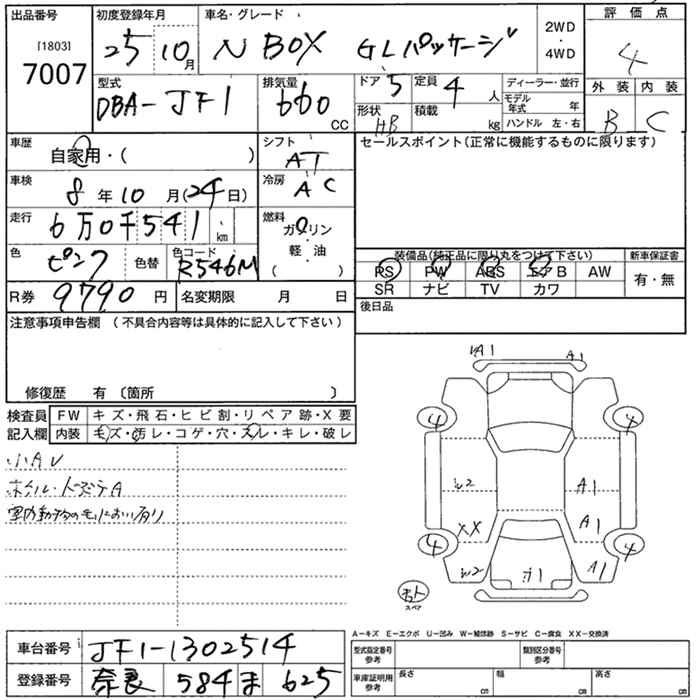 出品番号 初度登録年月 車名・グレード 2WD・4WD 評価点
[1803] 7007 25 10月 N BOX GLパッケージ 4
型式 排気量 ドア 5 定員 4人 ディーラー・並行 外装 内装
DBA-JF1 660 CC 形状 HB 積載 kg モデル年式 年 B C
ハンドル 左・右
車歴 自家用・( ) シフト AT セールスポイント(正常に機能するものに限ります)
車検 8年10月(24日) 冷房 AC
走行 6万0千541km 燃料 ガソリン 軽・油 ( )
色 ピンク 色替 色コード R546M 装備品(純正品に限り丸をつけて下さい) 新車保証書
PS PW ABS エアB AW 有・無
R券 9790円 名変期限 月 日 SR ナビ TV カワ
注意事項申告欄 (不具合内容等は具体的に記入して下さい) 後日品
修復歴 有 〔箇所 〕
検査員記入欄 FW キズ・飛石・ヒビ割・リペア跡・X要
内装 キズ・汚レ・コゲ・穴・スレ・キレ・破レ
小AU
室内動物の毛におい有り
A1 A1
4 4
W2 A1
XX A1
4 4
W2 A1
スペア
A-キズ E-エクボ U-凹み W-補修跡 S-サビ C-腐食 XX-交換済
車台番号 JF1-1302514 型式指定番号 参考 類別区分番号 参考
登録番号 奈良 584 ま 625 車庫証明用 参考 長さ cm 幅 cm 高さ cm